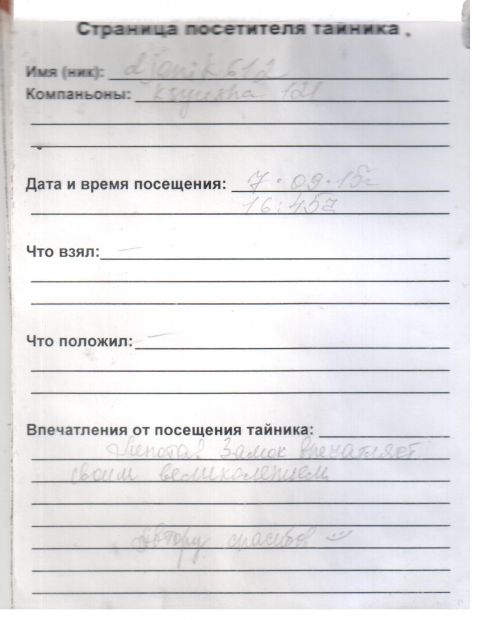 Страница посетителя тайника.
Имя (ник): djonik612
Компаньоны: ksyusha 121
Дата и время посещения: 7.09.15г
16:45
Что взял: —
Что положил: —
Впечатления от посещения тайника:
Лепота! Замок впечатляет
своим великолепием
Автору спасибо